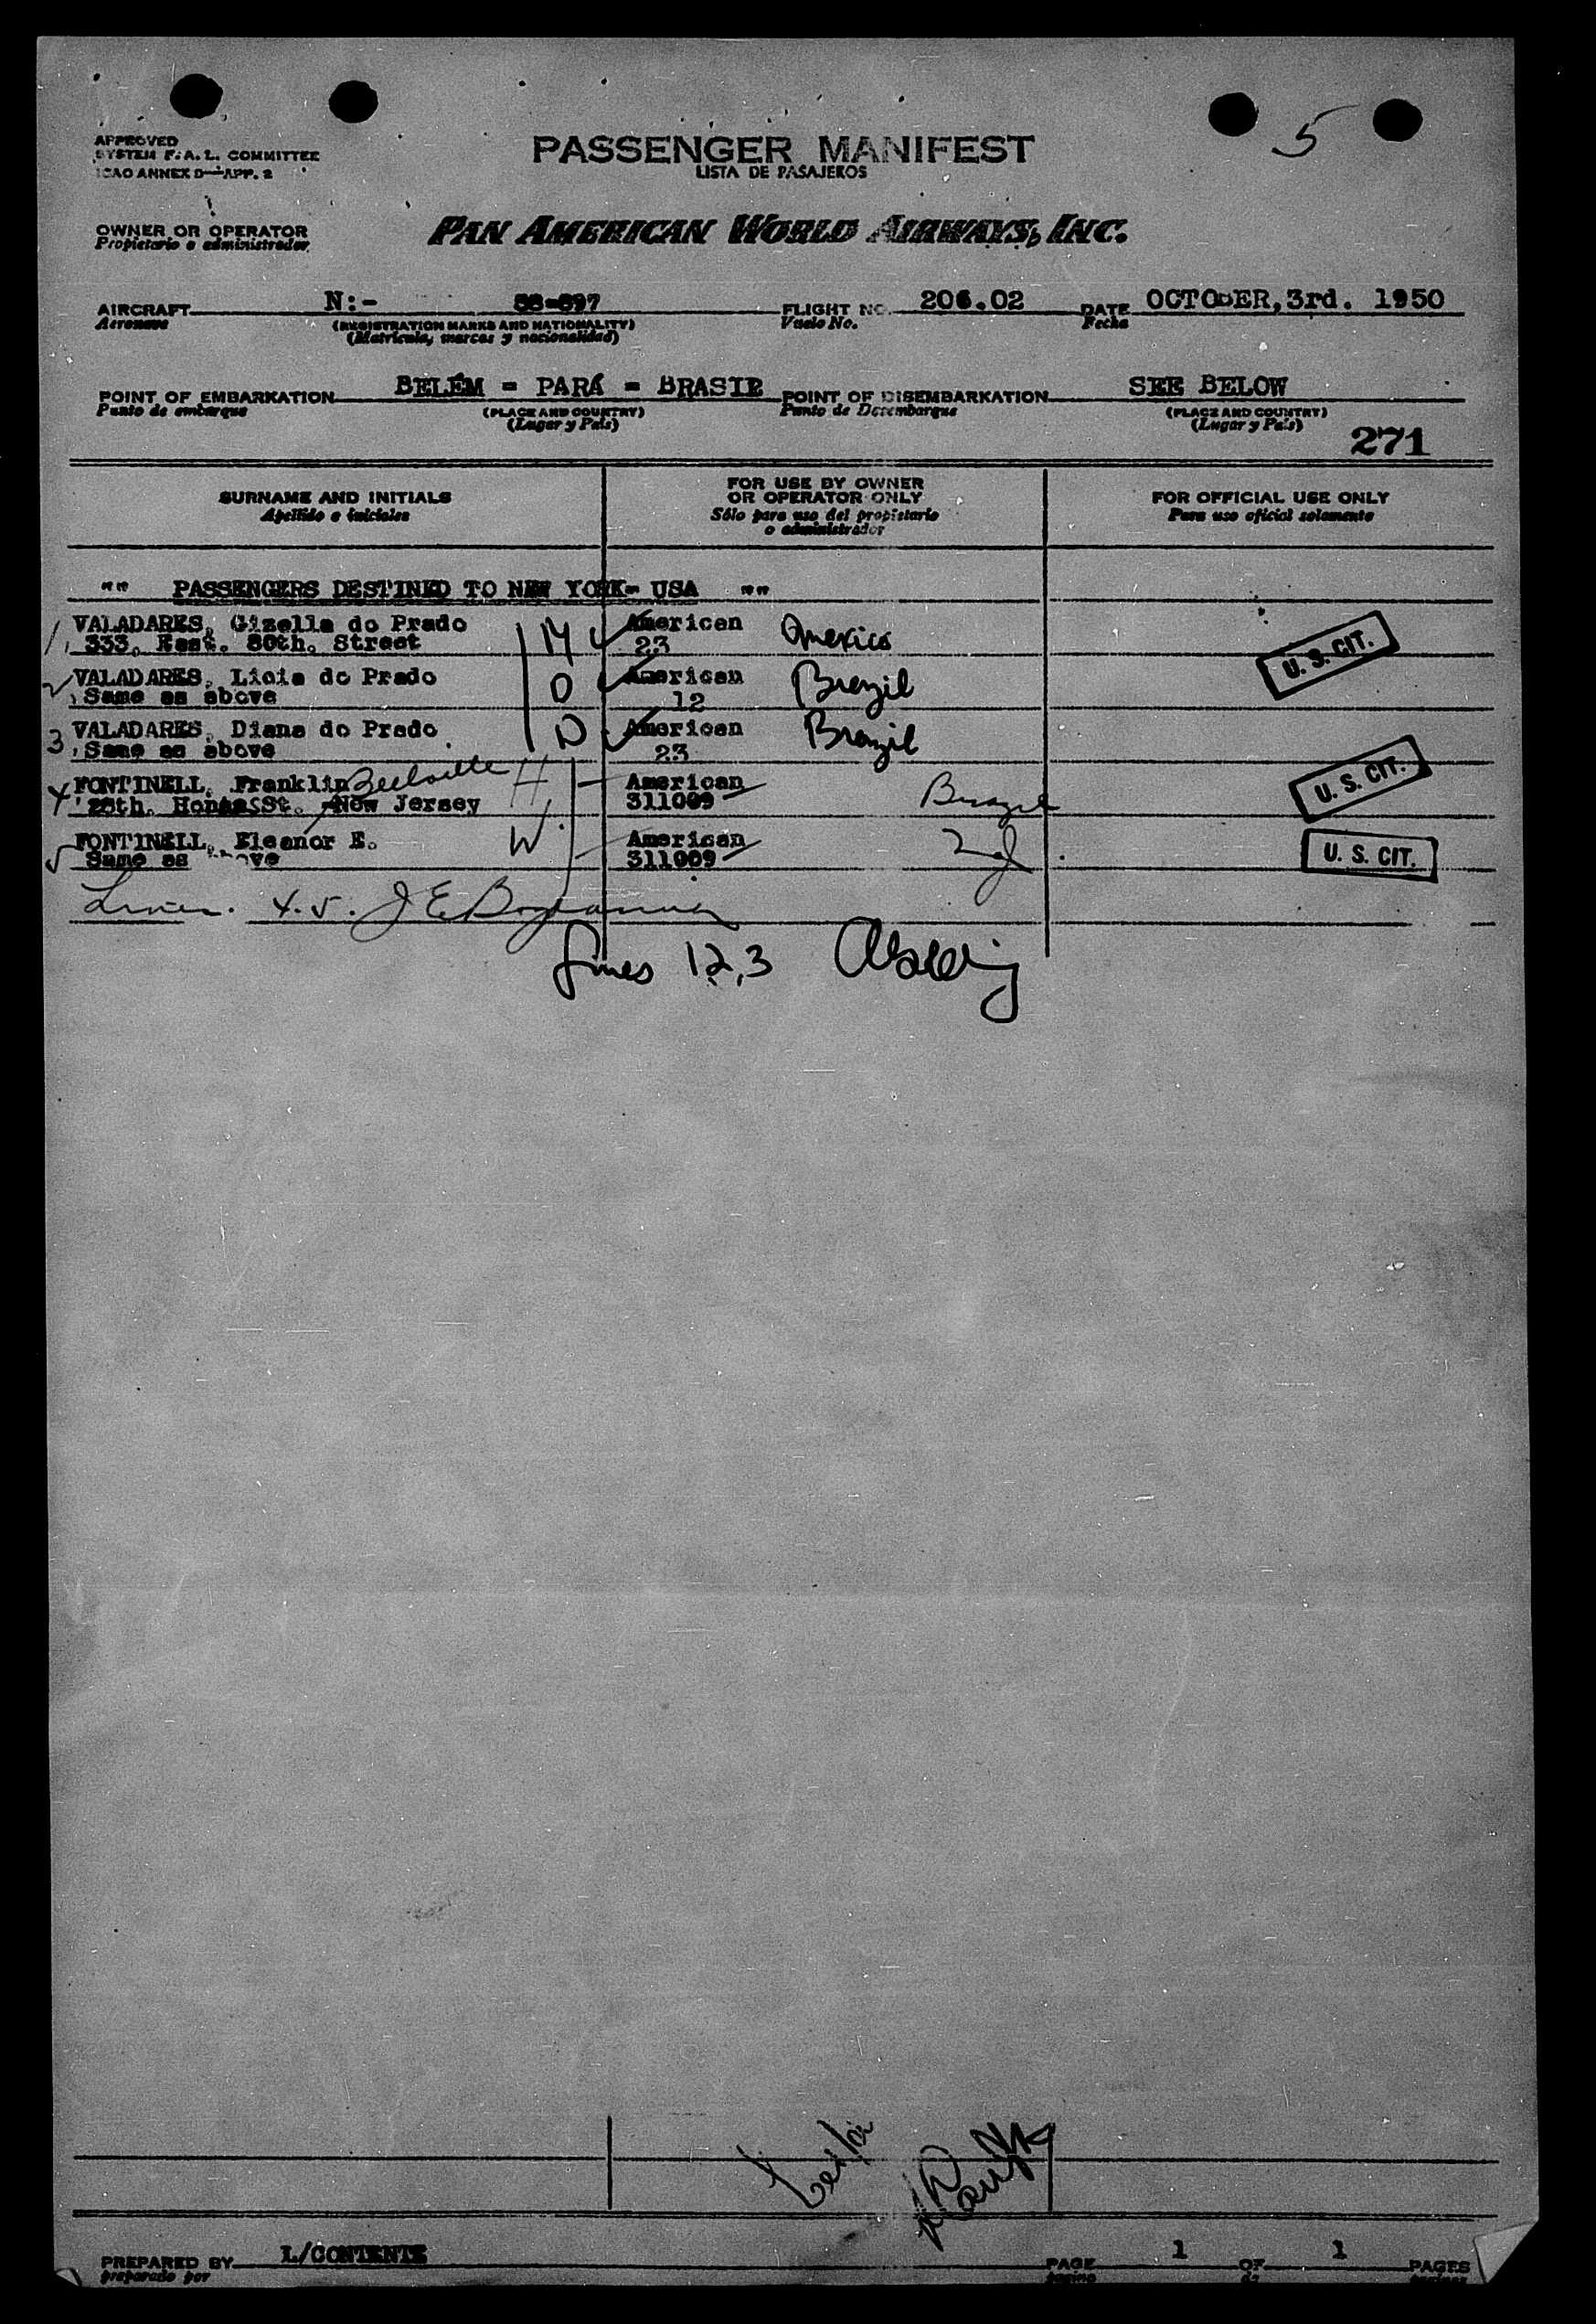 5
APPROVED
SYSTEM F.A.L. COMMITTEE
ICAO ANNEX D—APP. 2
PASSENGER MANIFEST
LISTA DE PASAJEROS
OWNER OR OPERATOR
Propietario o administrador
PAN AMERICAN WORLD AIRWAYS, INC.
AIRCRAFT N:- 88-897 FLIGHT NO. 206.02 DATE OCTOBER, 3rd. 1950
Aeronave (REGISTRATION MARKS AND NATIONALITY) Vuelo No. Fecha
(Matricula, marcas y nacionalidad)
POINT OF EMBARKATION BELÉM = PARÁ = BRASIL POINT OF DISEMBARKATION SEE BELOW
Punto de embarque (PLACE AND COUNTRY) Punto de Desembarque (PLACE AND COUNTRY)
(Lugar y País) (Lugar y País)
271
SURNAME AND INITIALS
Apellido e iniciales
FOR USE BY OWNER
OR OPERATOR ONLY
Sólo para uso del propietario
o administrador
FOR OFFICIAL USE ONLY
Para uso oficial solamente
"" PASSENGERS DESTINED TO NEW YORK- USA ""
1 VALADARES, Gizella do Prado M American Mexico
333, East. 80th. Street 23 U. S. CIT.
2 VALADARES, Licia do Prado D American Brazil
Same as above 12
3 VALADARES, Diana do Prado D American Brazil
Same as above 23
4 FONTINELL, Franklin Belleville H American Brazil U. S. CIT.
St. New Jersey 311009
5 FONTINELL, Eleanor E. W American U. S. CIT.
Same as above 311009
Lines 4.5. J E
Lines 1,2,3
PREPARED BY L/CONTENTE PAGE 1 OF 1 PAGES
preparado por